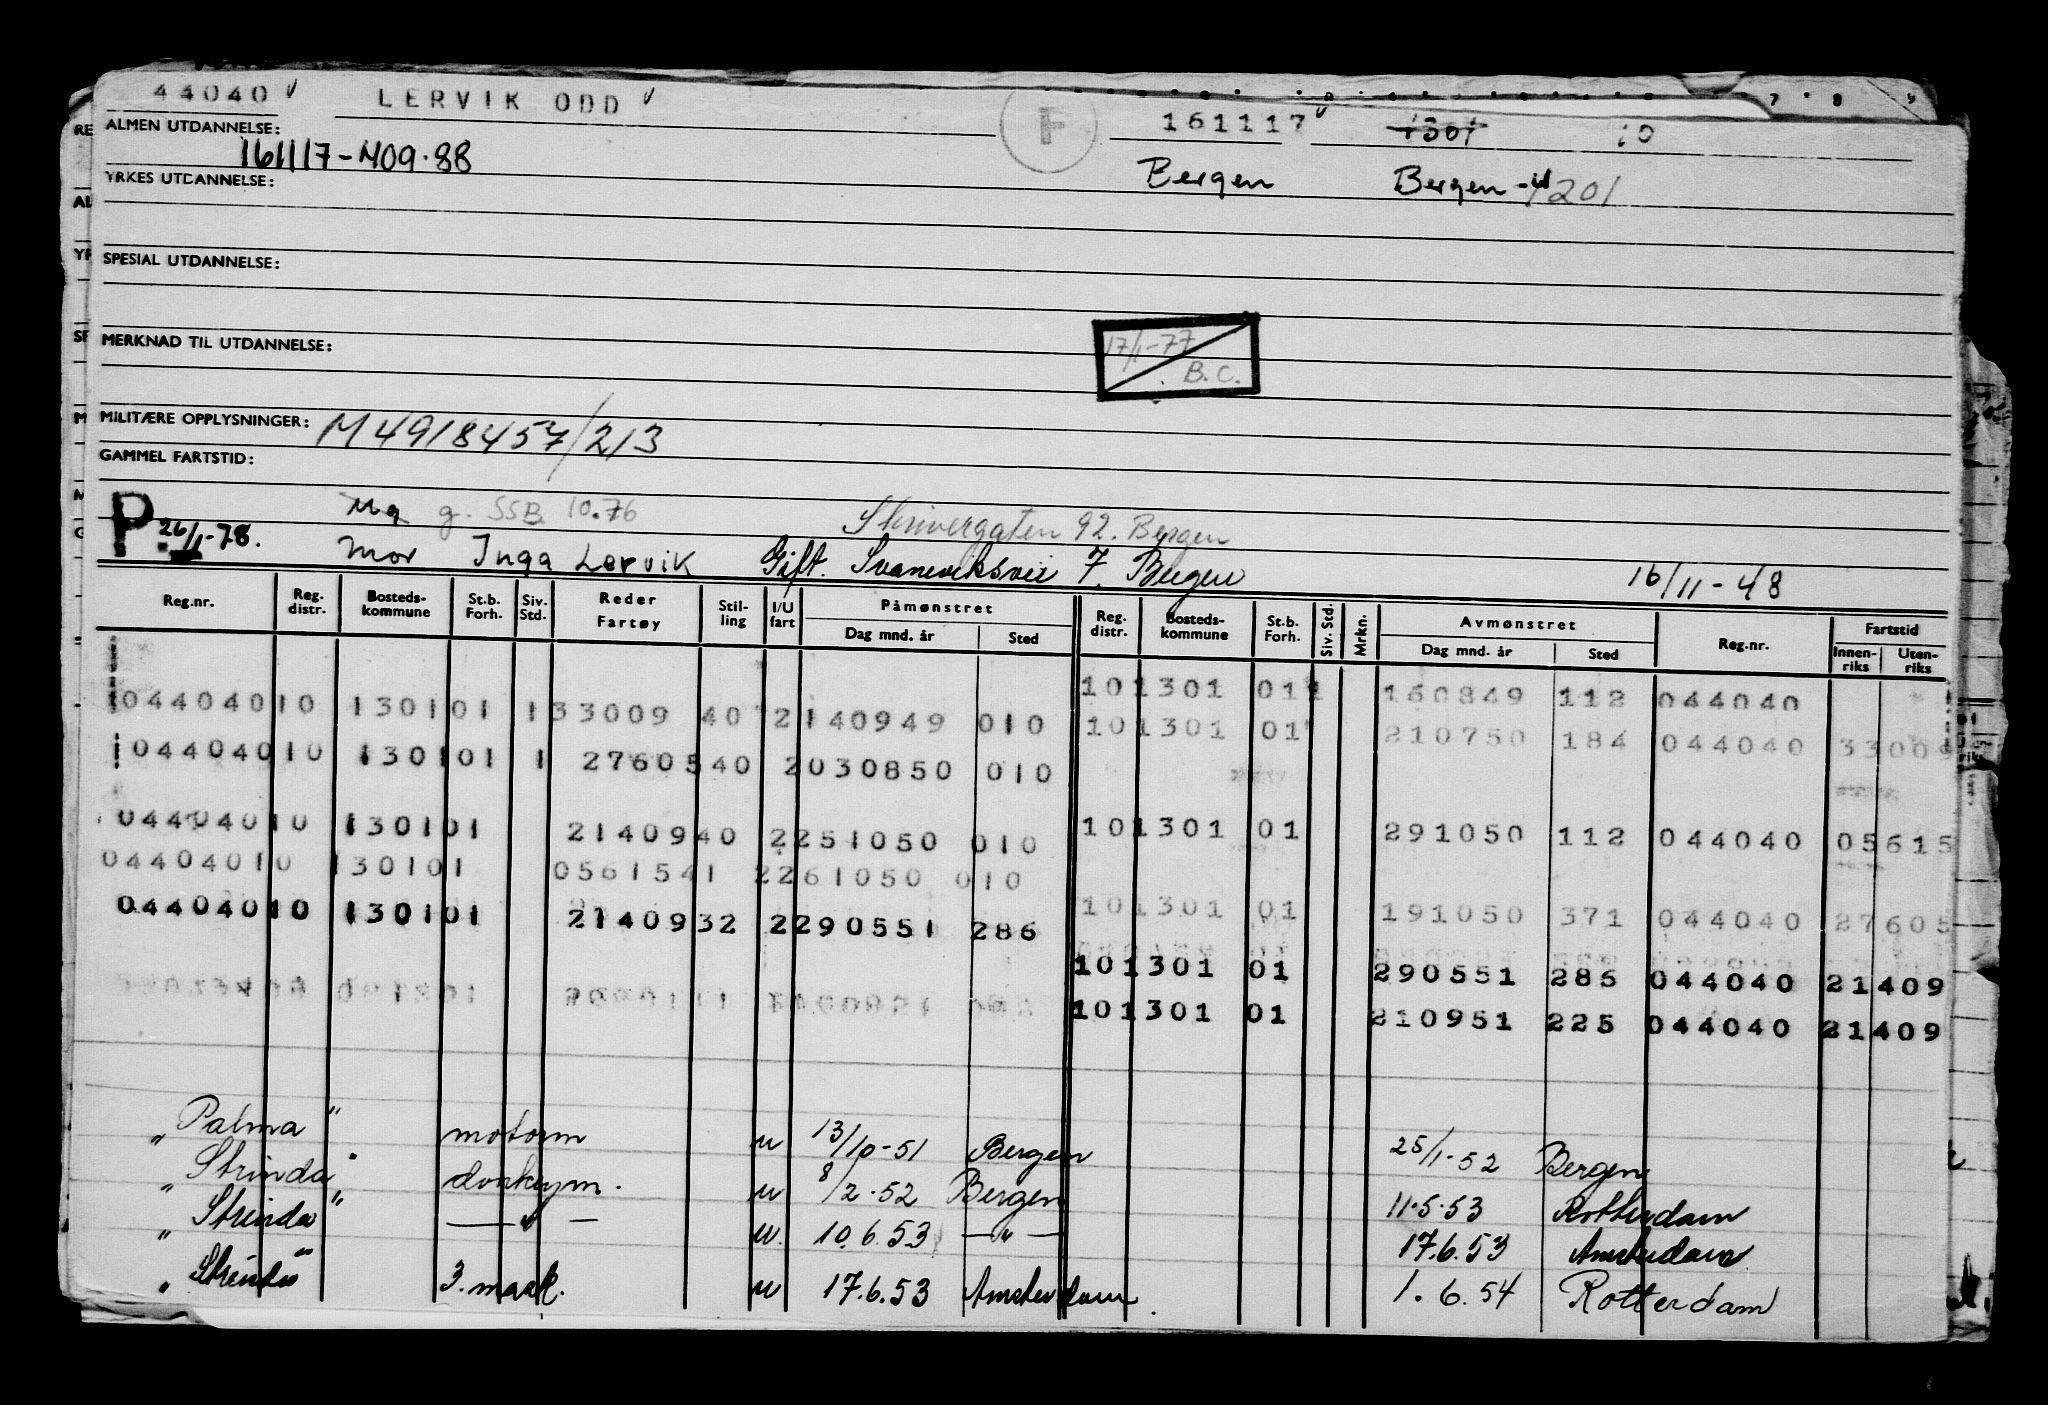 44040 LERVIK ODD F 161117 1301 10
ALMEN UTDANNELSE:
161117-409.88
YRKES UTDANNELSE: Bergen Bergen 1201
SPESIAL UTDANNELSE:
MERKNAD TIL UTDANNELSE: 17/1-77
B.C.
MILITÆRE OPPLYSNINGER: M4918457/213
GAMMEL FARTSTID:
P 26/1-78. g. SSB. 10.76 Skrivergaten 92. Bergen
Mor Inga Lervik Gift. Svaneviksvei 7. Bergen 16/11-48
Reg.nr. Reg. distr. Bosteds-kommune St.b. Forh. Siv. Std. Reder Fartøy Stil-ling I/U fart Påmønstret Dag mnd. år Sted Reg. distr. Bosteds-kommune St.b. Forh. Siv. Std. Mrkn. Avmønstret Dag mnd. år Sted Reg.nr. Fartstid Innen-riks Uten-riks
101301 011 160849 112 044040
04404010 130101 133009 40 2140949 010
101301 01 210750 184 044040 33009
04404010 130101 1 2760540 2030850 010
04404010 130101 2140940 2251050 010
101301 01 291050 112 044040 05615
04404010 130101 0561541 2261050 010
04404010 130101 2140932 2290551 286
101301 01 191050 371 044040 27605
101301 01 290551 286 044040 21409
101301 01 210951 225 044040 21409
"Palma" motorm u 13/10-51 Bergen 25/1-52 Bergen
"Strinda" donkeym. u 8/2.52 Bergen 11.5.53 Rotterdam
"Strinda" —"— u. 10.6.53 —"— 17.6.53 Amsterdam
"Strinda" 3. mask. u 17.6.53 Amsterdam. 1.6.54 Rotterdam